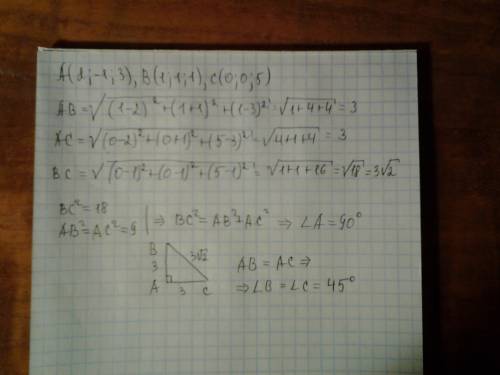 A(2;-1;3), B(1;1;1), C(0;0;5)
AB=√(1-2)²+(1+1)²+(1-3)²=√1+4+4=3
AC=√(0-2)²+(0+1)²+(5-3)²=√4+1+4=3
BC=√(0-1)²+(0-1)²+(5-1)²=√1+1+16=√18=3√2
BC²=18
AB²=AC²=9 | ⇒ BC²=AB²+AC² ⇒ ∠A=90°
B
3 3√2
A 3 C
AB=AC⇒
⇒∠B=∠C=45°